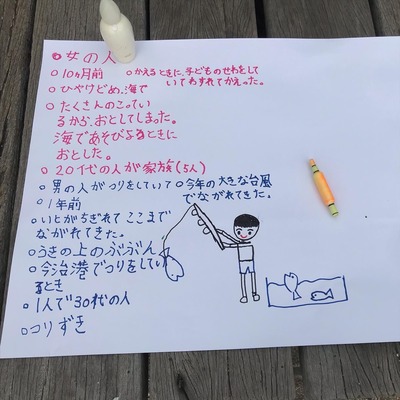 ○女の人
○10ヶ月前 ○かえるときに、子どものせわをして
いてわすれてかえった。
○ひやけどめ、海で
○たくさんのこってい
るから、おとしてしまった。
海であそびよるときに
おとした。
○20代の人が家族(5人)
○男の人がつりをしていて ○今年の大きな台風
でながれてきた。
○1年前
○いとがちぎれてここまで
ながれてきた。
○うきの上のぶぶん
○今治港でつりをしてい
るとき
○1人で30代の人
○つりずき